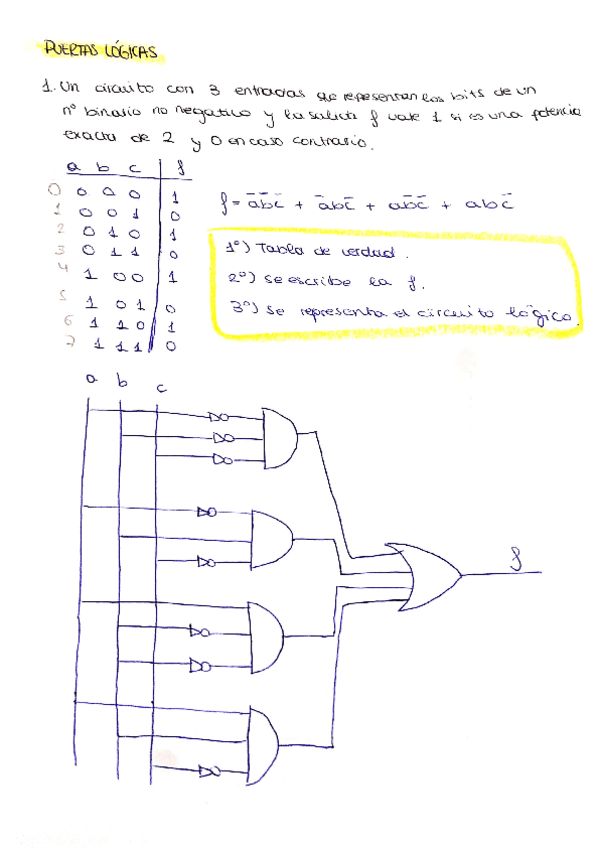 PUERTAS LÓGICAS
1. Un circuito con 3 entradas que representan los bits de un
nº binario no negativo y la salida f vale 1 si es una potencia
exacta de 2 y 0 en caso contrario.
a b c f
0 0 0 0 1
1 0 0 1 0
2 0 1 0 1
3 0 1 1 0
4 1 0 0 1
5 1 0 1 0
6 1 1 0 1
7 1 1 1 0
f = a̅b̅c̅ + a̅bc̅ + ab̅c̅ + abc̅
1º) Tabla de verdad.
2º) Se escribe la f.
3º) Se representa el circuito lógico.
a b c
f